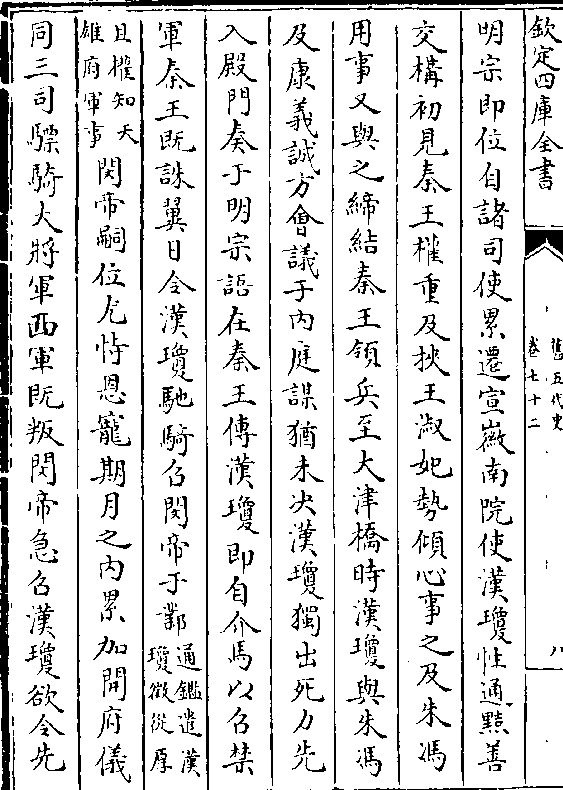 欽定四庫全書
舊五代史
卷七十二
八
明宗即位自諸司使累遷宣徽南院使漢瓊性通黠善
交構初見秦王權重及挾王淑妃勢傾心事之及朱馮
用事又與之締結秦王領兵至天津橋時漢瓊與朱馮
及康義誠方會議于內庭謀猶未决漢瓊獨出死力先
入殿門奏于明宗語在秦王傳漢瓊即自介馬以召禁
軍秦王既誅翼日令漢瓊馳騎召閔帝于鄴通鑑遣漢
瓊徵從厚
且權知天
雄府軍事閔帝嗣位尤恃恩寵期月之内累加開府儀
同三司驃騎大將軍西軍既叛閔帝急召漢瓊欲令先